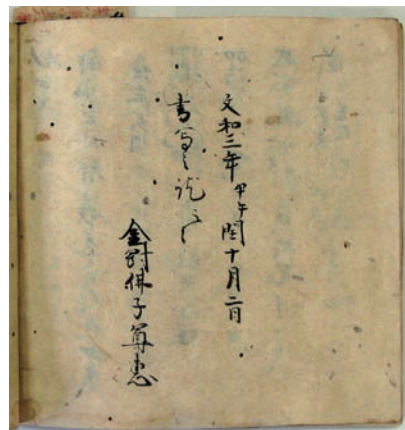 文和三年甲午閏十月二日
書写之訖云々
金剛佛子尊恵